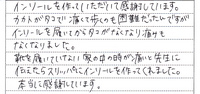 インソールを作っていただいて感謝しています。
カカトがタコで痛くて歩くのも困難だったんですが
インソールを履いてからタコがなくなり痛みも
なくなりました。
靴を履いていない家の中の時が痛いと先生に
伝えたらスリッパにインソールを作ってくれました。
本当に感謝しています。